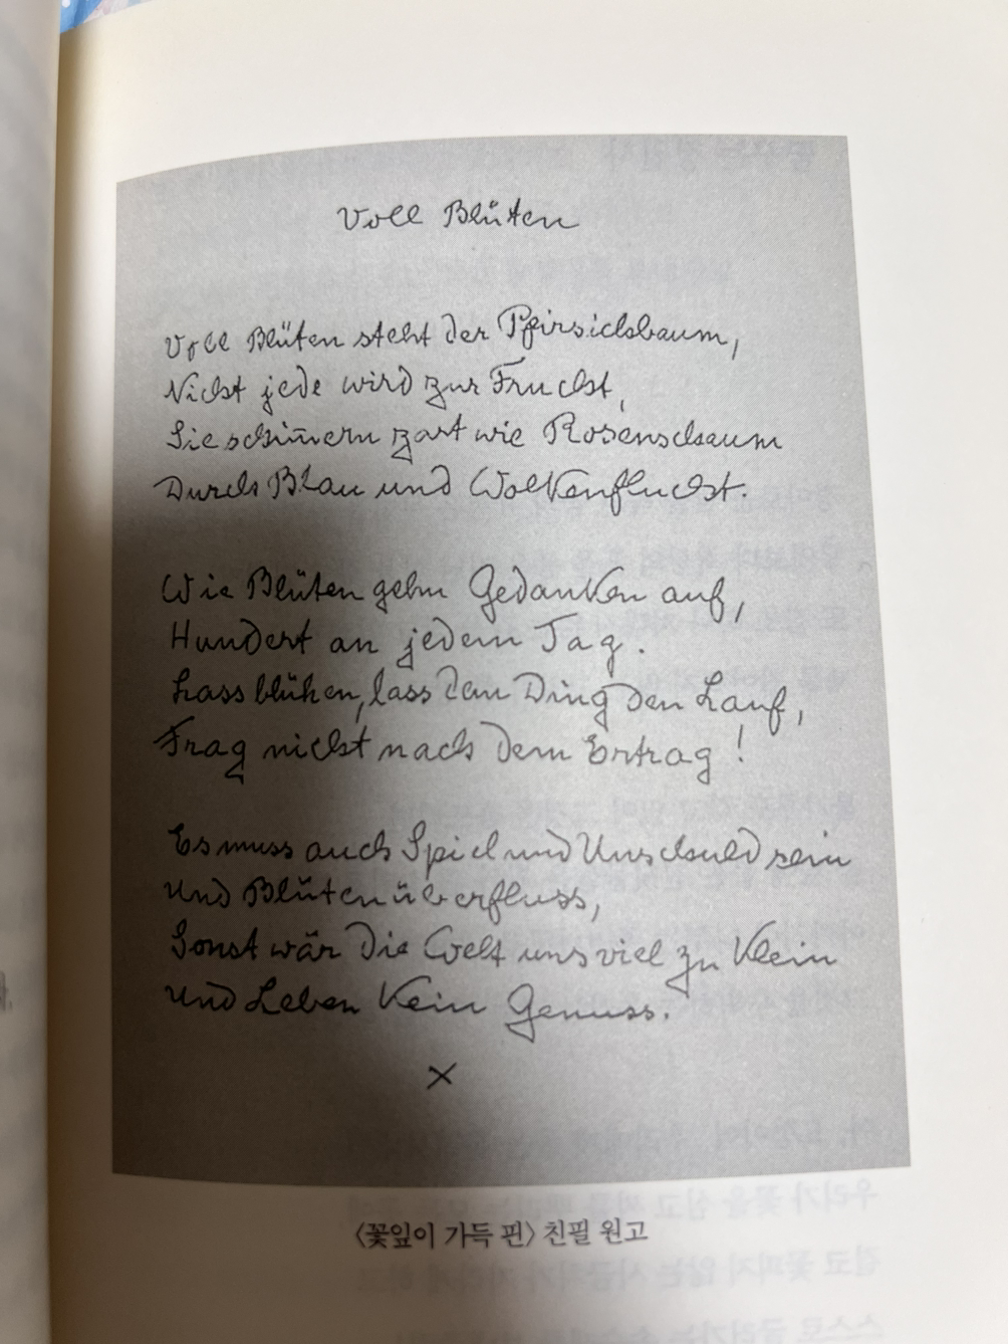 Voll Blüten
Voll Blüten steht der Pfirsichbaum,
Nicht jede wird zur Frucht,
Sie schim̄ern zart wie Rosenschaum
Durch Blau und Wolkenflucht.
Wie Blüten gehn Gedanken auf,
Hundert an jedem Tag.
Lass blühen, lass dem Ding den Lauf,
Frag nicht nach dem Ertrag!
Es muss auch Spiel und Unschuld sein
Und Blütenüberfluss,
Sonst wär die Welt uns viel zu klein
Und Leben kein Genuss.
×
〈꽃잎이 가득 핀〉 친필 원고